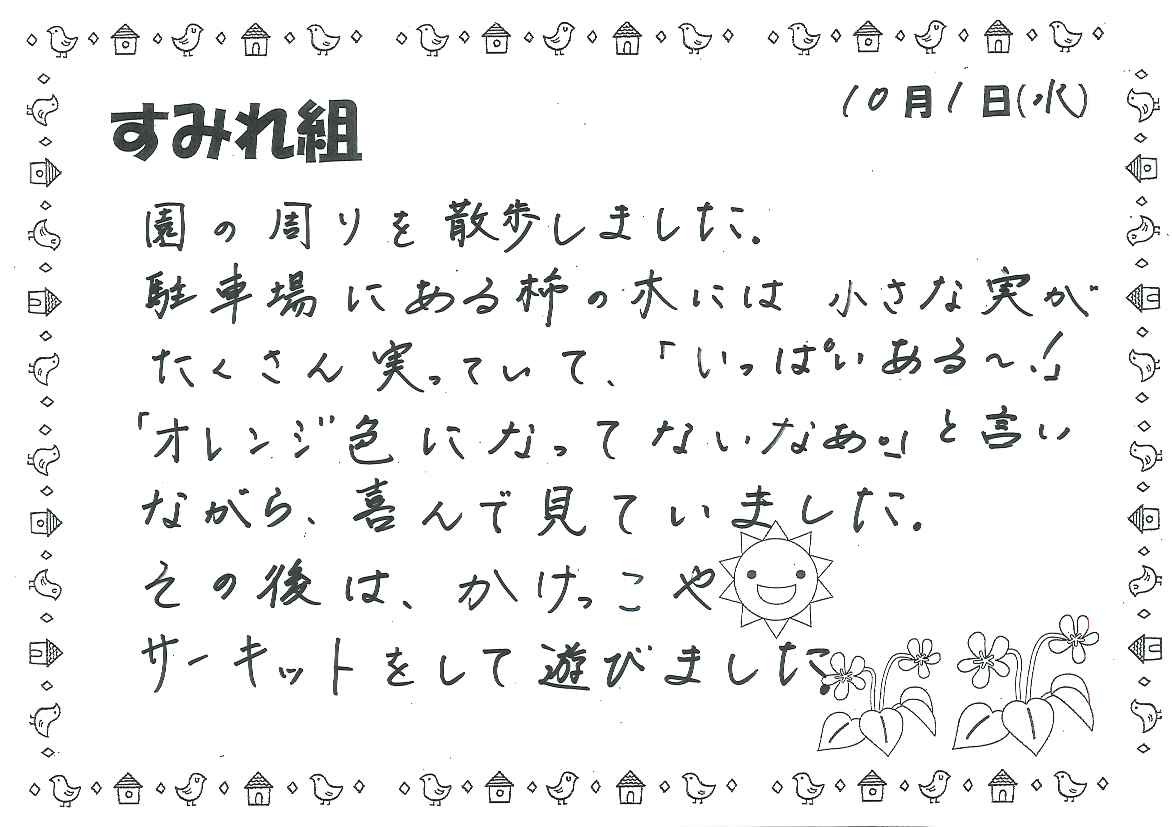 10月1日(水)
すみれ組
園の周りを散歩しました。
駐車場にある柿の木には小さな実が
たくさん実っていて、「いっぱいある～!」
「オレンジ色になってないなぁ。」と言い
ながら、喜んで見ていました。
その後は、かけっこや
サーキットをして遊びました。